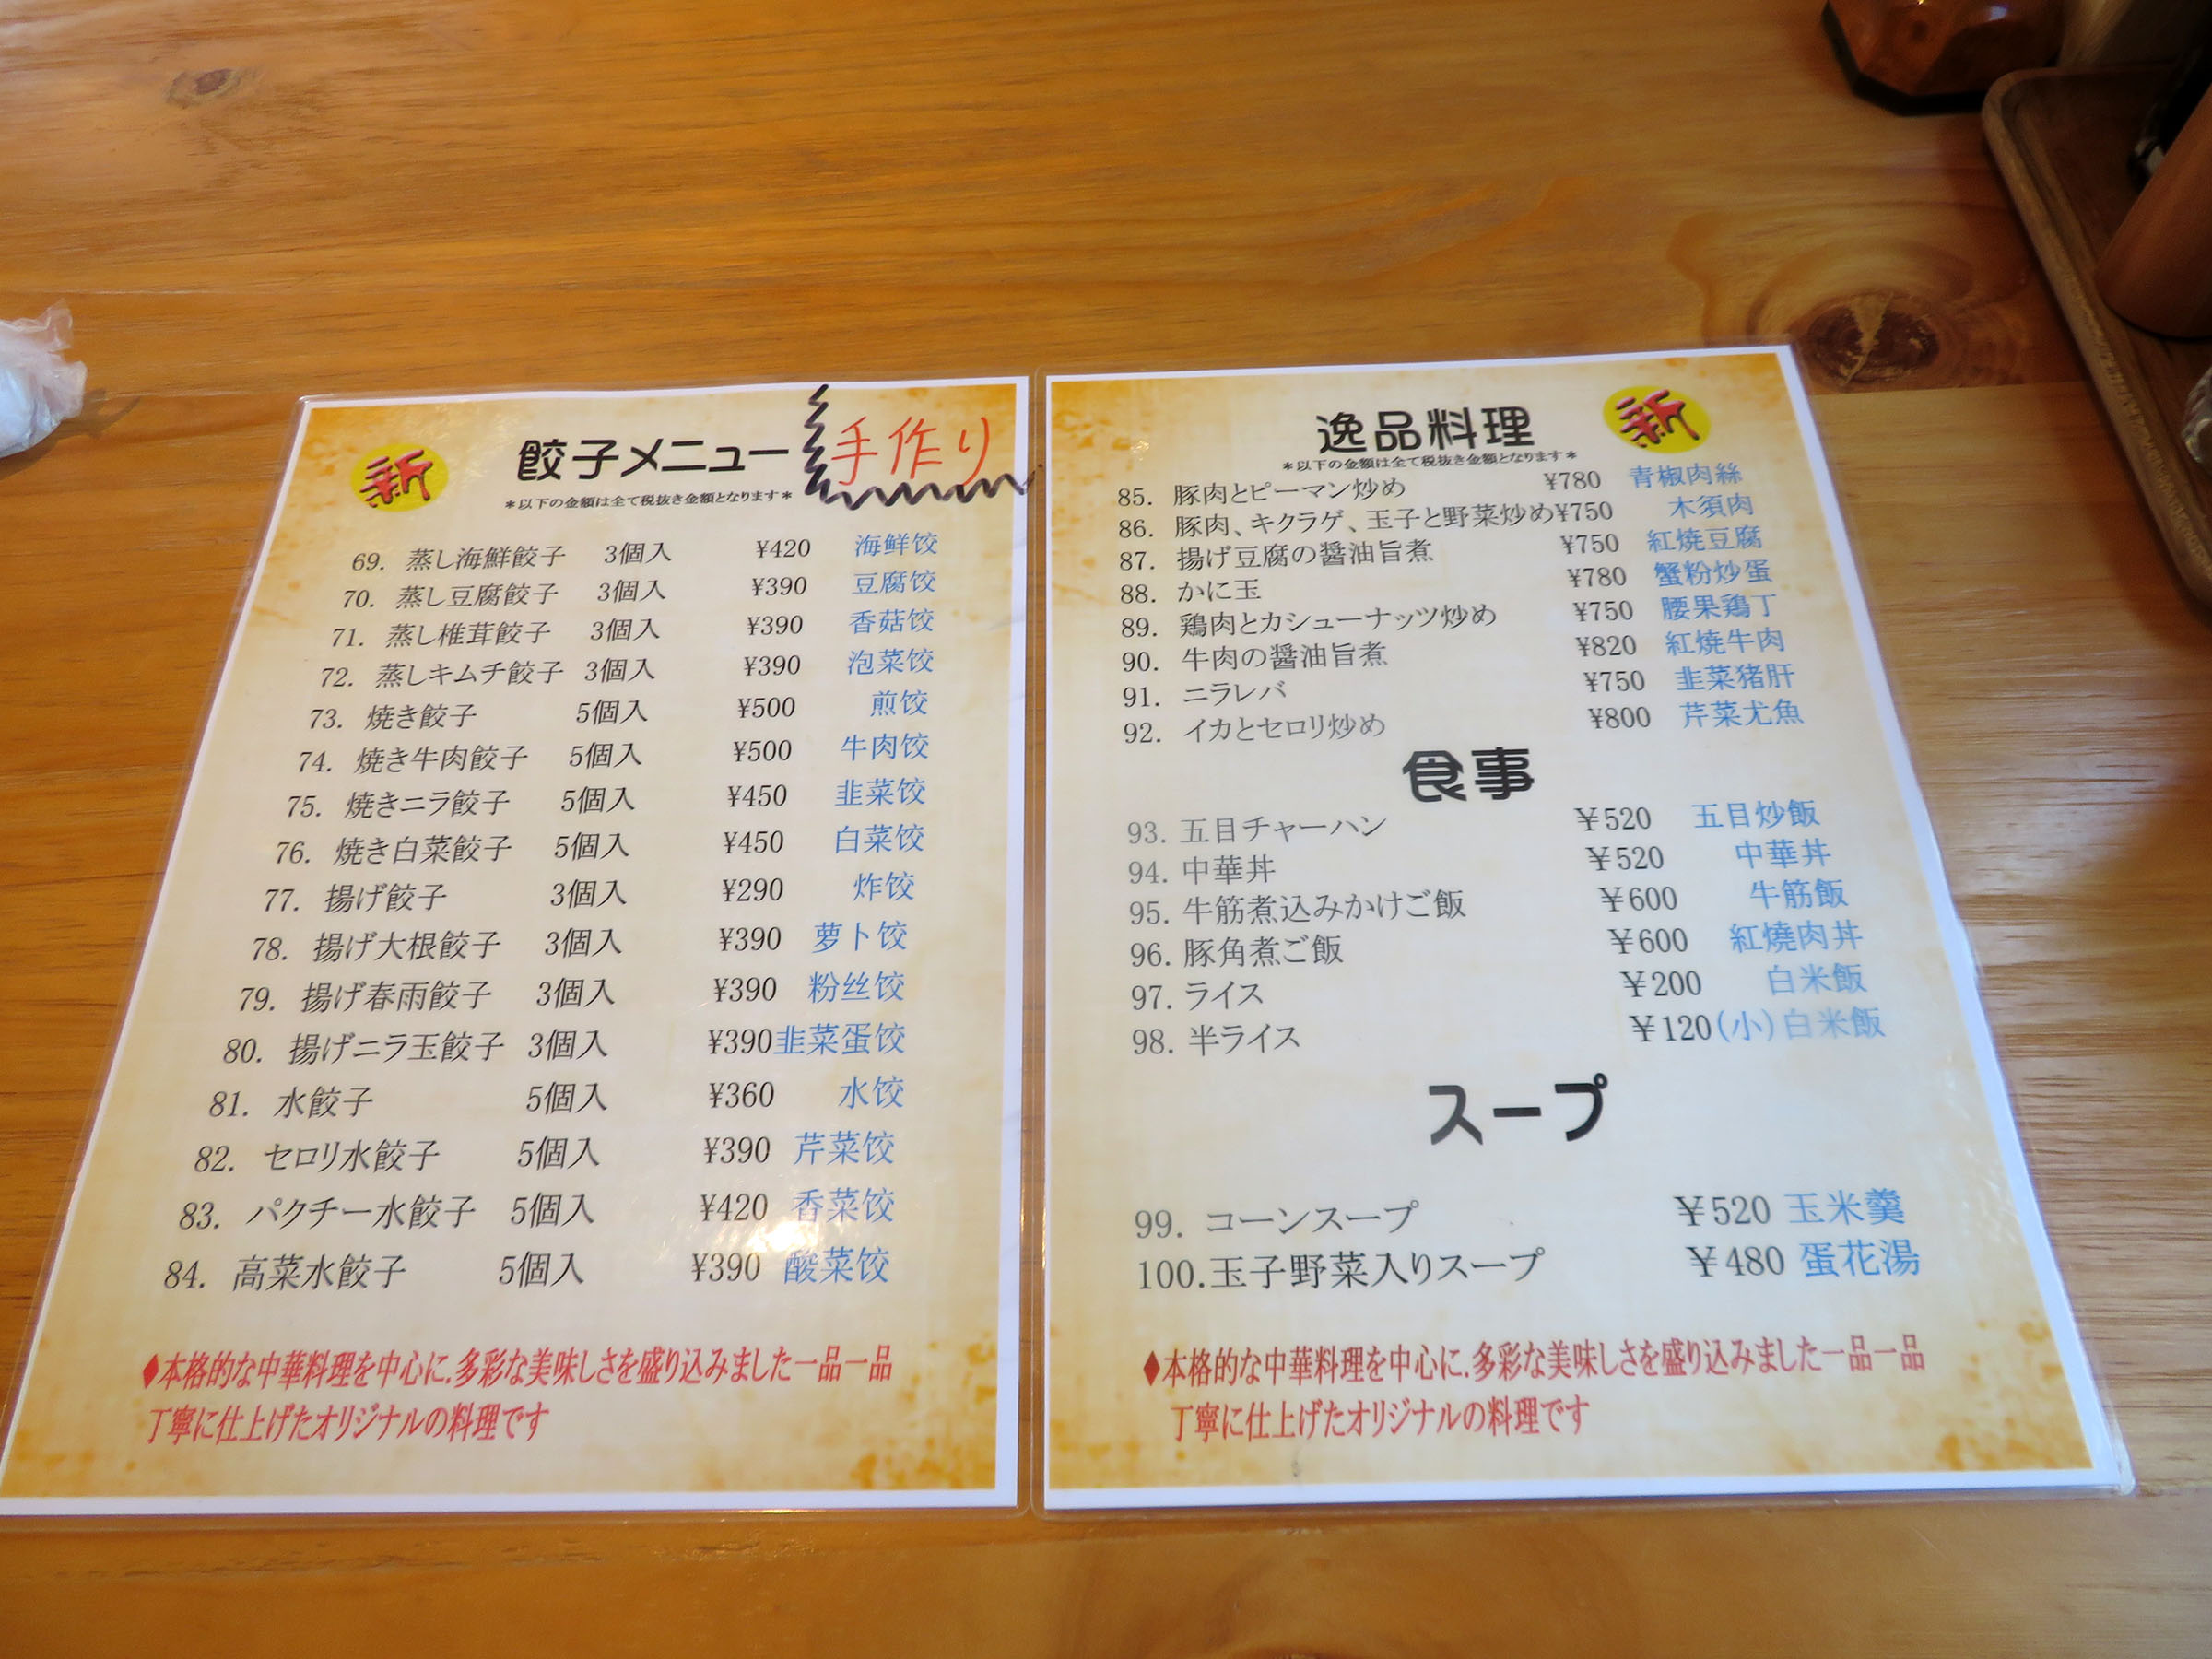 新
餃子メニュー 手作り
*以下の金額は全て税抜き金額となります*
69. 蒸し海鮮餃子 3個入 ¥420 海鮮饺
70. 蒸し豆腐餃子 3個入 ¥390 豆腐饺
71. 蒸し椎茸餃子 3個入 ¥390 香菇饺
72. 蒸しキムチ餃子 3個入 ¥390 泡菜饺
73. 焼き餃子 5個入 ¥500 煎饺
74. 焼き牛肉餃子 5個入 ¥500 牛肉饺
75. 焼きニラ餃子 5個入 ¥450 韭菜饺
76. 焼き白菜餃子 5個入 ¥450 白菜饺
77. 揚げ餃子 3個入 ¥290 炸饺
78. 揚げ大根餃子 3個入 ¥390 萝卜饺
79. 揚げ春雨餃子 3個入 ¥390 粉丝饺
80. 揚げニラ玉餃子 3個入 ¥390 韭菜蛋饺
81. 水餃子 5個入 ¥360 水饺
82. セロリ水餃子 5個入 ¥390 芹菜饺
83. パクチー水餃子 5個入 ¥420 香菜饺
84. 高菜水餃子 5個入 ¥390 酸菜饺
♦本格的な中華料理を中心に.多彩な美味しさを盛り込みました一品一品
丁寧に仕上げたオリジナルの料理です
逸品料理
新
*以下の金額は全て税抜き金額となります*
85. 豚肉とピーマン炒め ¥780 青椒肉絲
86. 豚肉、キクラゲ、玉子と野菜炒め ¥750 木須肉
87. 揚げ豆腐の醤油旨煮 ¥750 紅焼豆腐
88. かに玉 ¥780 蟹粉炒蛋
89. 鶏肉とカシューナッツ炒め ¥750 腰果鶏丁
90. 牛肉の醤油旨煮 ¥820 紅焼牛肉
91. ニラレバ ¥750 韭菜猪肝
92. イカとセロリ炒め ¥800 芹菜尤魚
食事
93. 五目チャーハン ￥520 五目炒飯
94. 中華丼 ￥520 中華丼
95. 牛筋煮込みかけご飯 ￥600 牛筋飯
96. 豚角煮ご飯 ￥600 紅燒肉丼
97. ライス ￥200 白米飯
98. 半ライス ￥120 (小)白米飯
スープ
99. コーンスープ ￥520 玉米羹
100.玉子野菜入りスープ ￥480 蛋花湯
♦本格的な中華料理を中心に.多彩な美味しさを盛り込みました一品一品
丁寧に仕上げたオリジナルの料理です